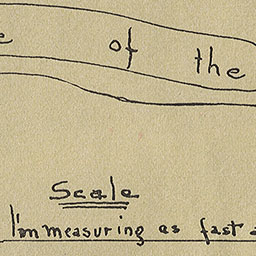 e of the
Scale
I'm measuring as fast a